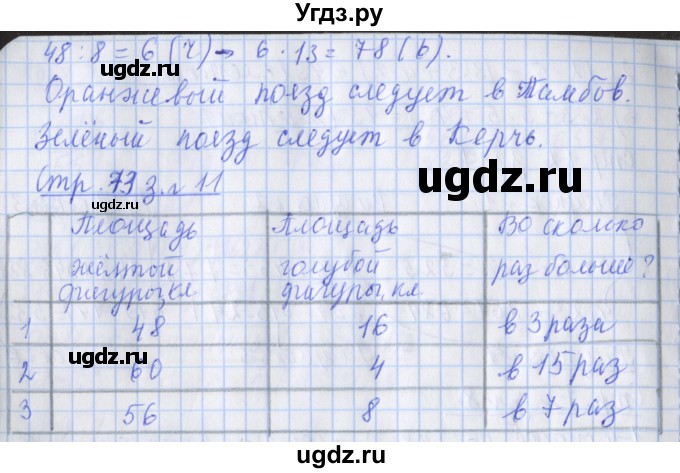 Угдз.ру
48 : 8 = 6 (ч) → 6 · 13 = 78 (в).
ugdz.ru
Оранжевый поезд следует в Тамбов.
ugdz.ru
Зелёный поезд следует в Керчь.
Стр. 73 з. 11
ugdz.ru
Площадь жёлтой фигуры, кл | Площадь голубой фигуры, кл | Во сколько раз больше?
1 | 48 | 16 | в 3 раза
ugdz.ru
2 | 60 | 4 | в 15 раз
ugdz.ru
3 | 56 | 8 | в 7 раз